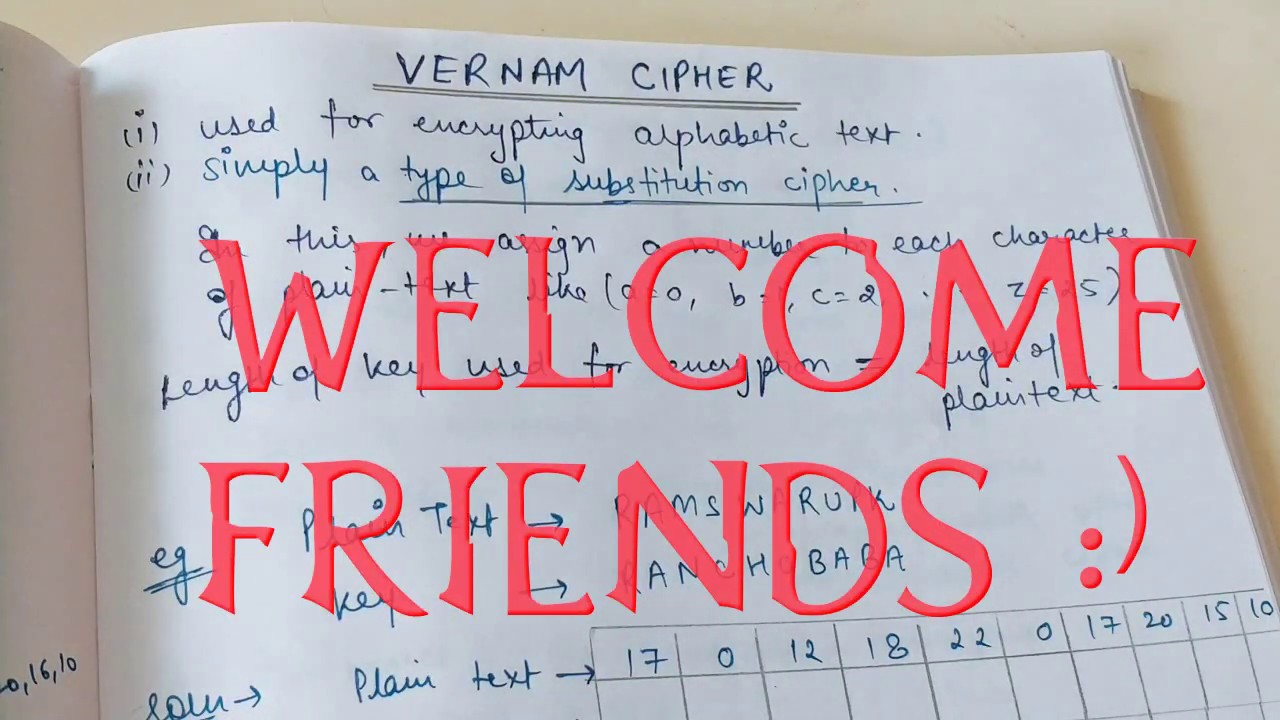 VERNAM CIPHER
(i) used for encrypting alphabetic text.
(ii) simply a type of substitution cipher.
In this, we assign a number to each character
of plain-text like (a=0, b=1, c=2, . z=25)
Length of key used for encryption = length of
plaintext.
WELCOME
FRIENDS :)
eg Plain Text → RAMSWARUPK
key → RANCHOBABA
0,16,10
Soln → Plain text → 17 0 12 18 22 0 17 20 15 10